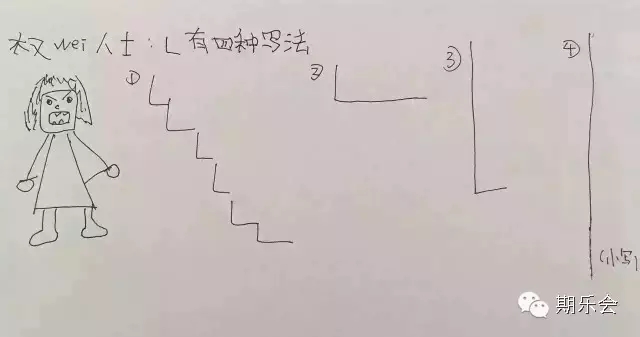 权wei人士:L有四种写法
① ② ③ ④
(小写)
期乐会